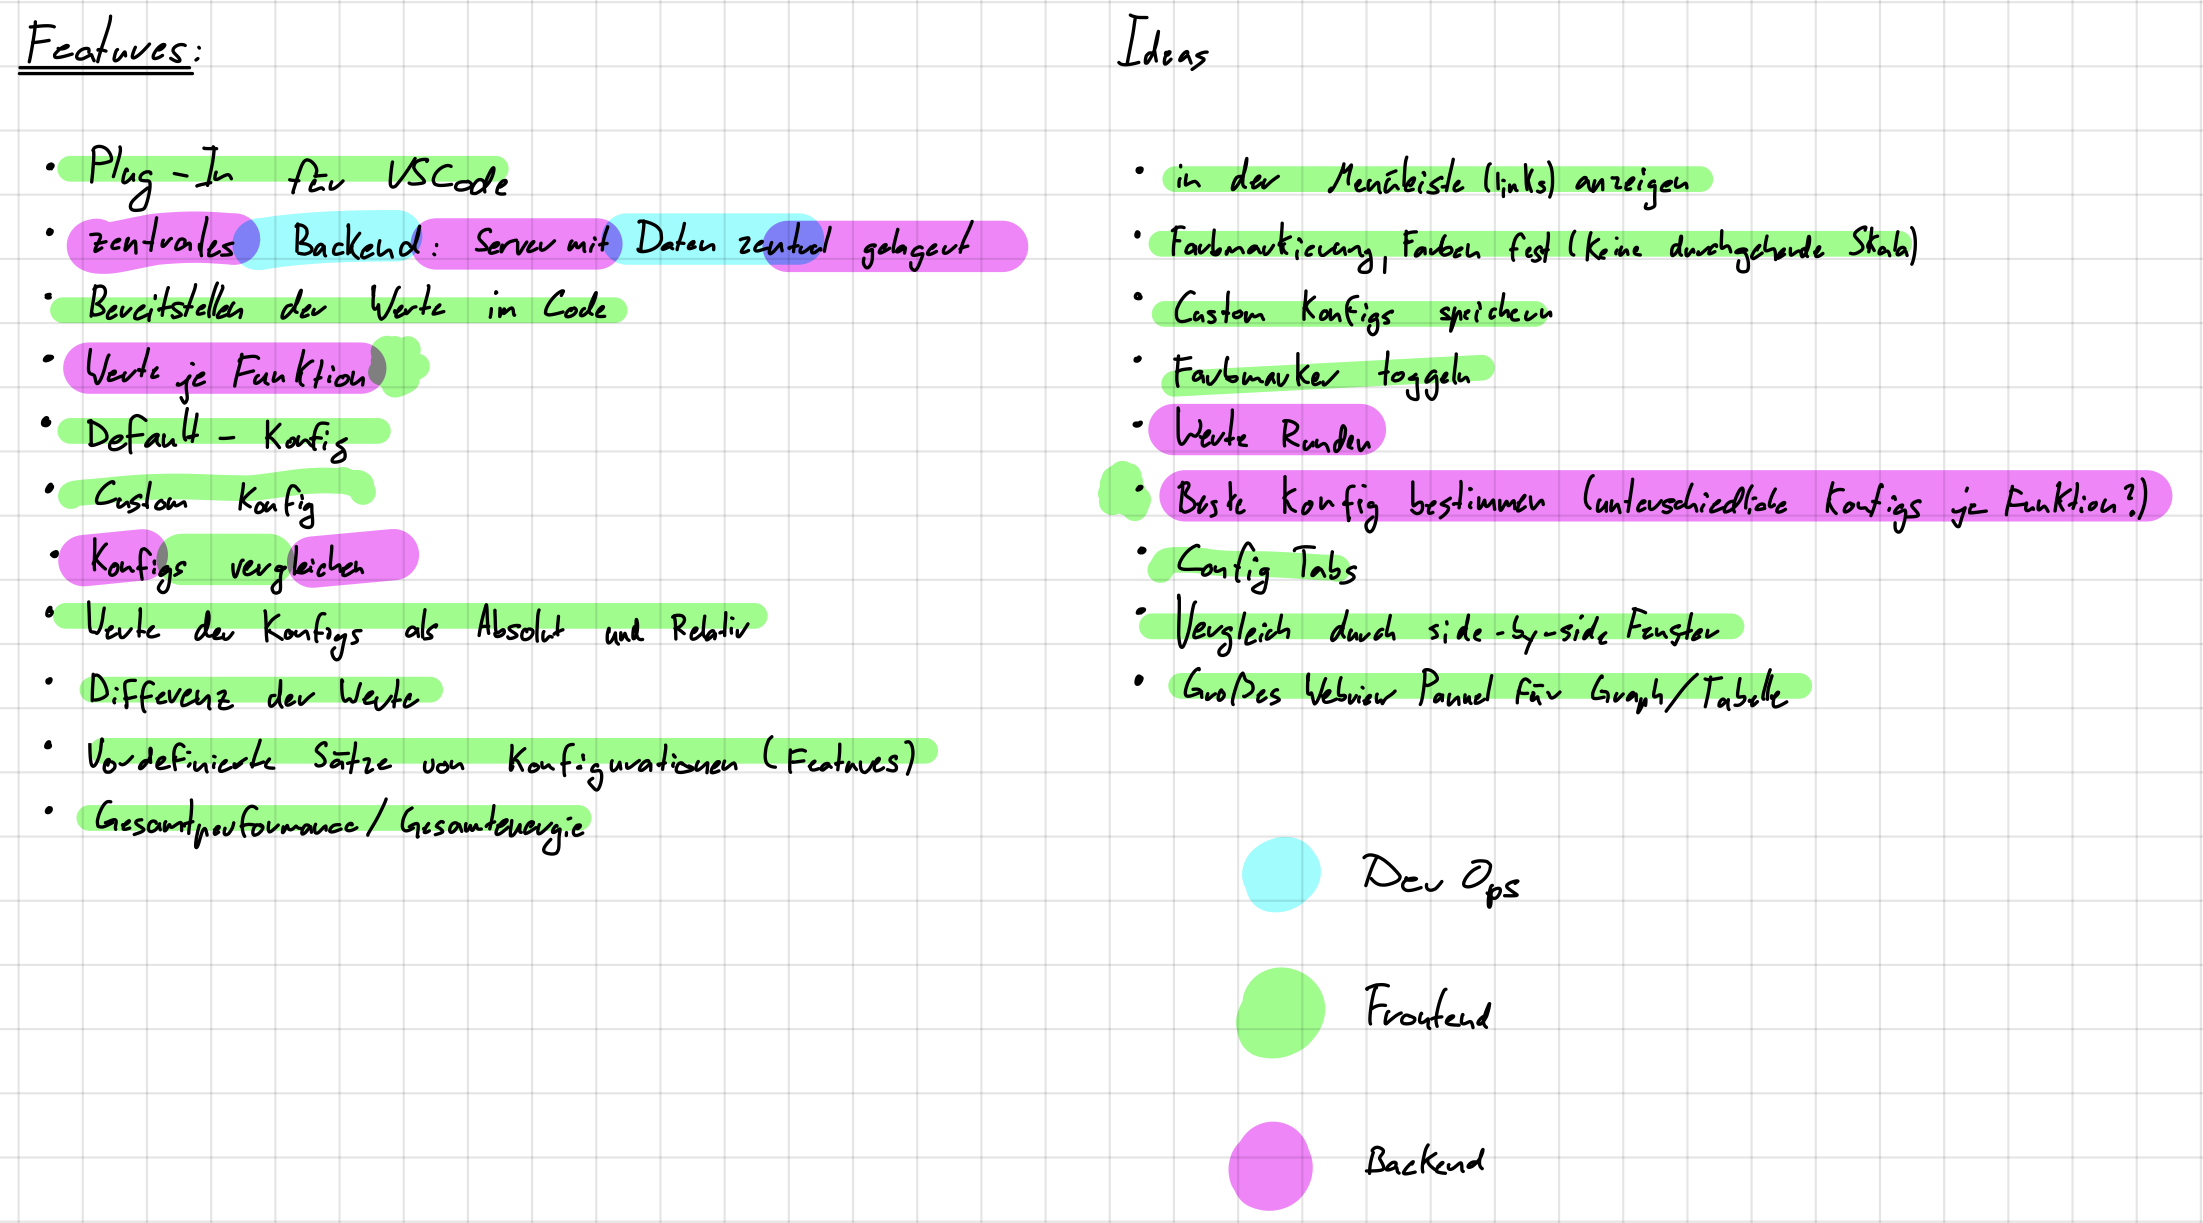 Features:
• Plug-In für VSCode
• zentrales Backend: Server mit Daten zentral gelagert
• Bereitstellen der Werte im Code
• Werte je Funktion
• Default - Konfig
• Custom Konfig
• Konfigs vergleichen
• Werte der Konfigs als Absolut und Relativ
• Differenz der Werte
• Vordefinierte Sätze von Konfigurationen (Features)
• Gesamtperformance/Gesamtenergie
Ideas
• in der Menüleiste (links) anzeigen
• Farbmarkierung, Farben fest (Keine durchgehende Skala)
• Custom Konfigs speichern
• Farbmarker toggeln
• Werte Runden
• Beste Konfig bestimmen (unterschiedliche Konfigs je Funktion?)
• Config Tabs
• Vergleich durch side-by-side Fenster
• Großes Webview Pannel für Graph/Tabelle
Dev Ops
Frontend
Backend